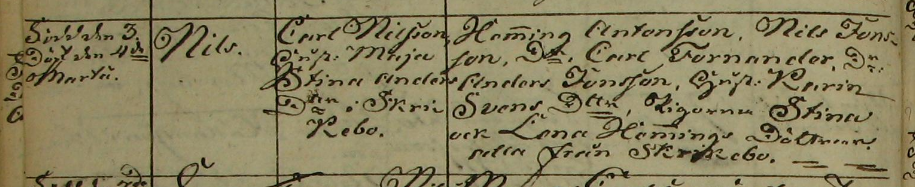 Född den 3.
Döpt den 4de
Martii.
Nils.
Carl Nilsson,
Hust: Maja
Stina Anders
Dttr i Skri
kebo.
Hem̄ing Antonsson, Nils Jons-
son, D:, Carl Fornander, D:
Anders Jonsson, Hust: Karin
Svens Dttr, Pigorna Stina
och Lena Hem̄ings Döttrar
alla från Skrikebo.